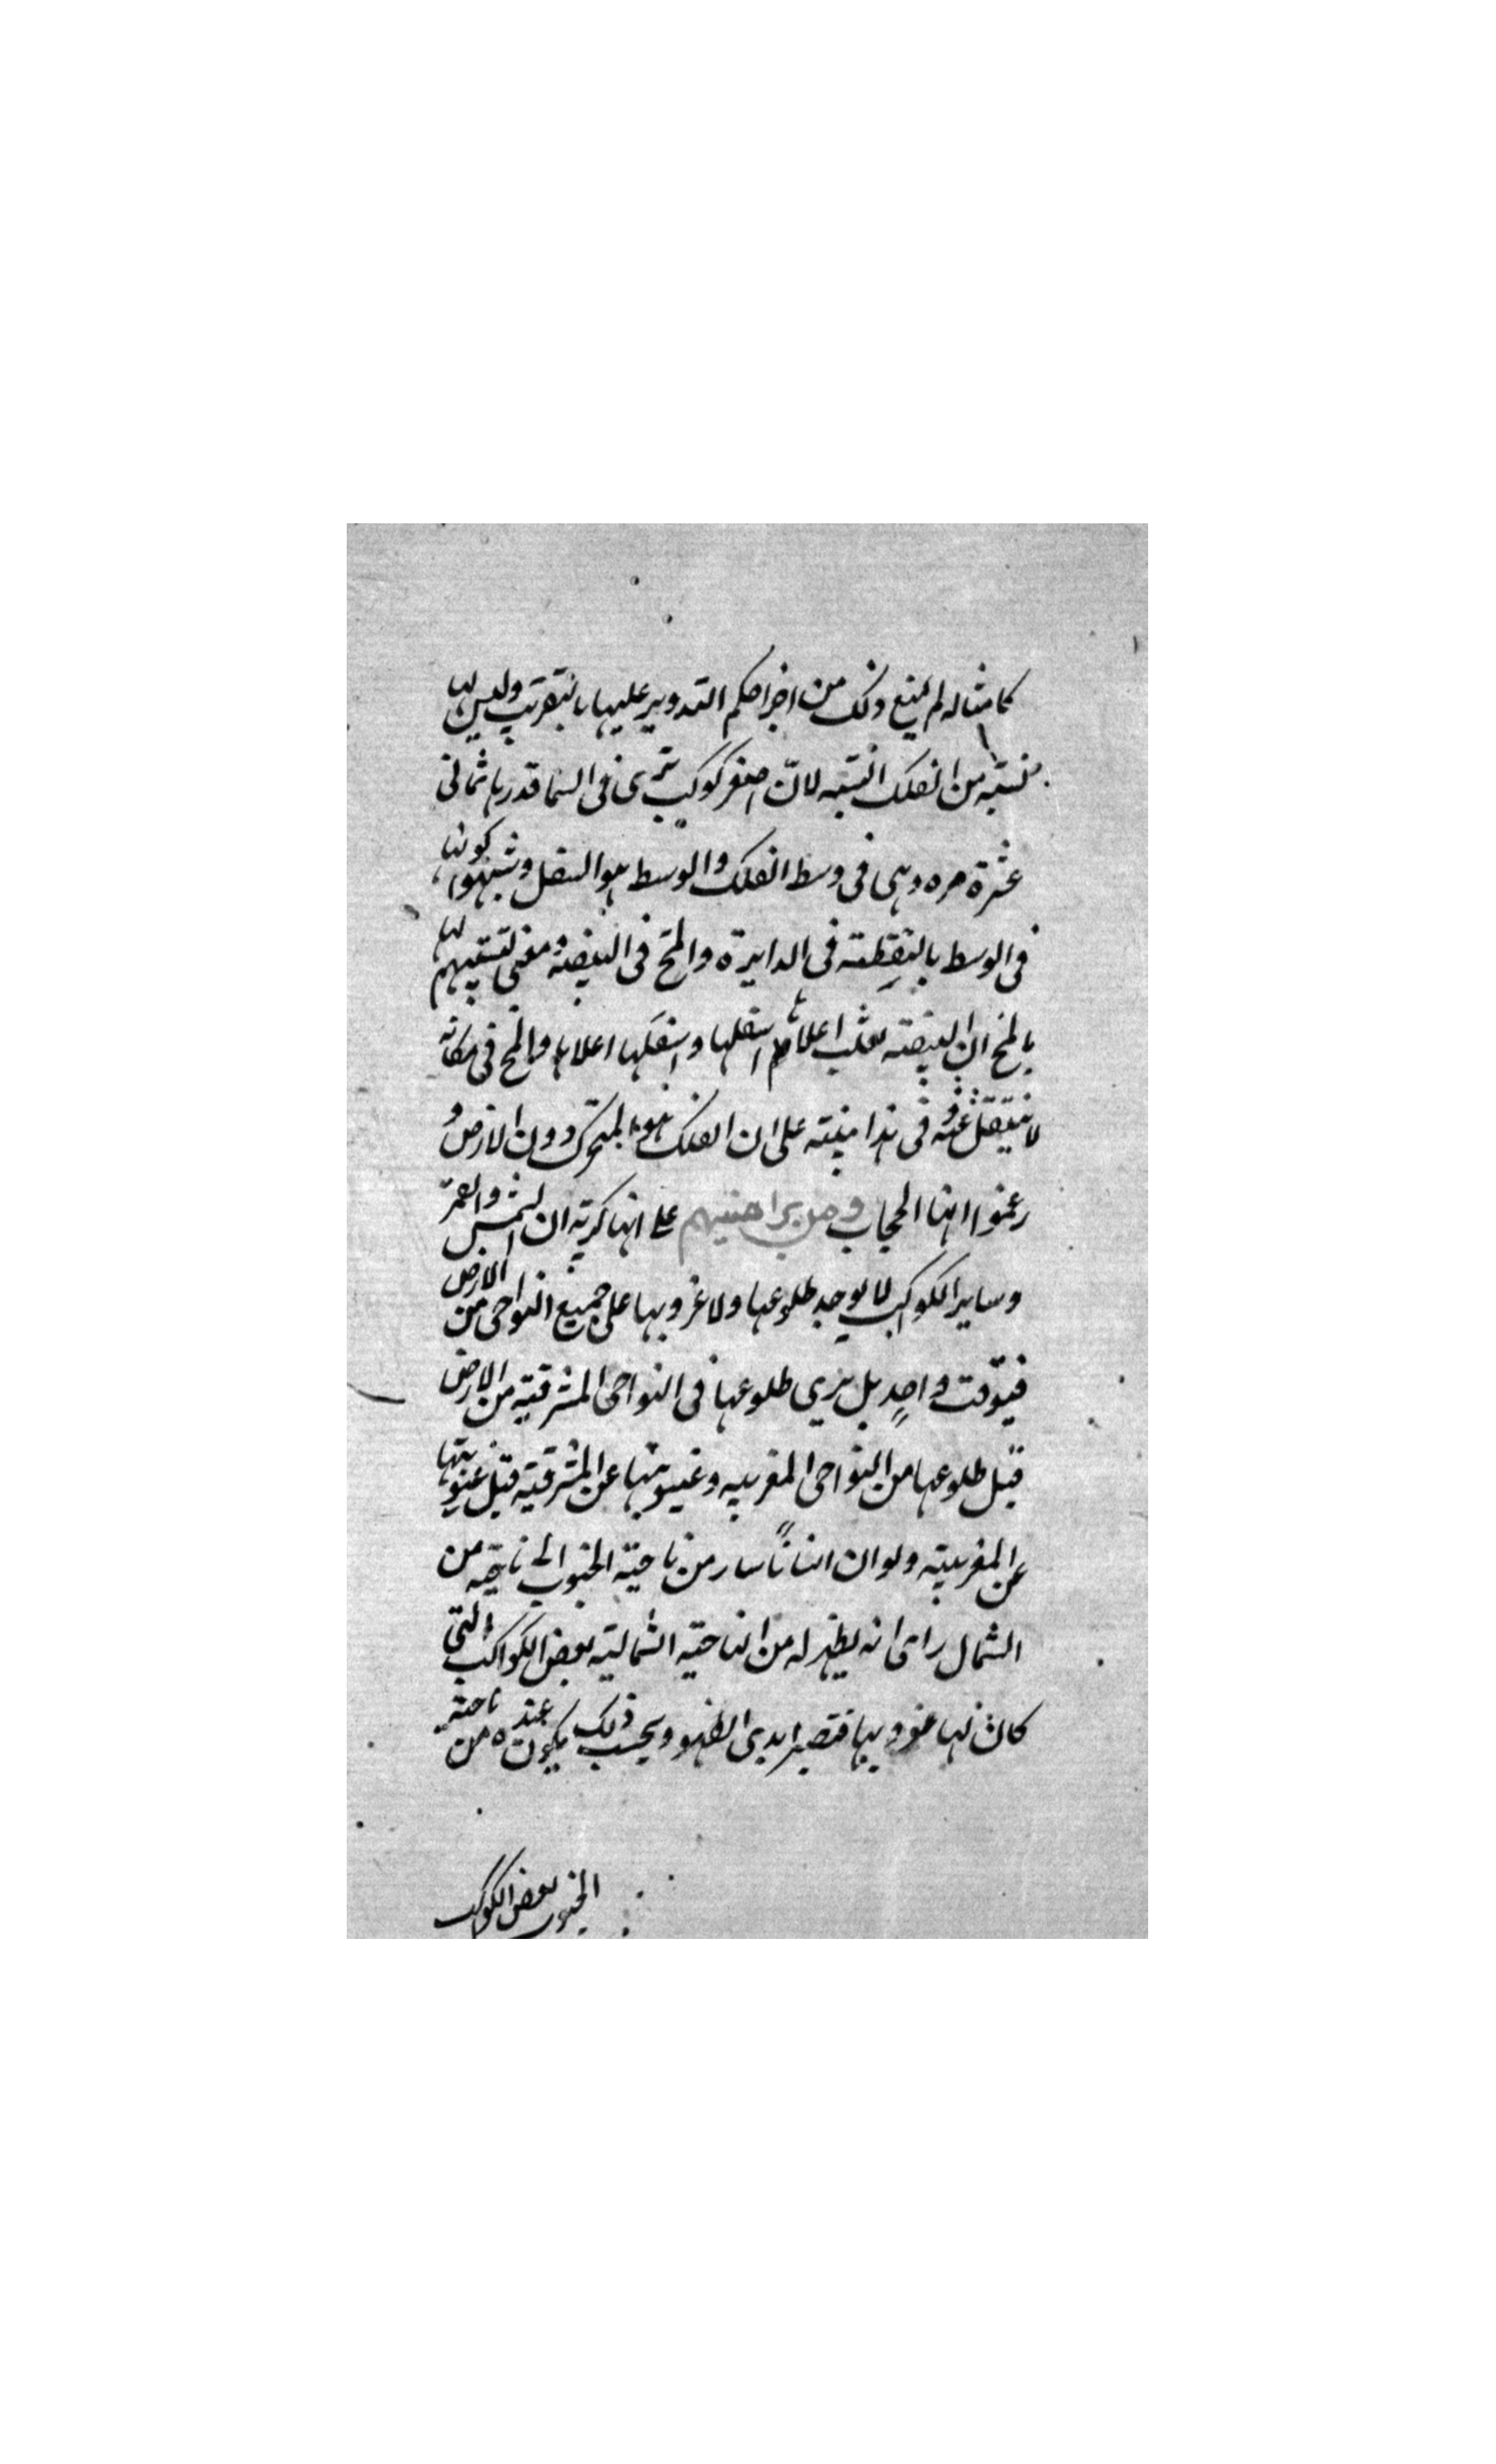 كامثاله لم يمنع ذلك من اجرا حكم التدوير عليها بالتقريب وليس لها
نسبته من الفلك النسبه لانّ اصغر كوكب يرى فى السما قدرها ثمانى
عشرة مره وهى فى وسط الفلك والوسط هو السفل وشبهوا كونها
فى الوسط بالنقطته فى الدايرة والمخ فى البيضه ومعنى تشبيههم لها
بالمخ ان البيضته اعلاها اسفلها واسفلها اعلاها والمخ فى مكانه
لا ينتقل عنه وفى هذا منبته على ان الفلك هو المتحرك دون الارض و
زعموا انها الحجاب ومن براهنيهم على انها كرية ان الشمس والقمر
وساير الكواكب لا يوجد طلوعها ولا غروبها على جميع النواحى من الارض
فيوقت واحدٍ بل يرى طلوعها فى النواحى المشرقيه من الارض
قبل طلوعها من النواحى المغربيه وغيبوبتها عن المشرقية قبل غيوبتها
عن المغربيته ولو ان انساناً سار من ناحيته الجنوب الى ناحيه من
الشمال راى انه يظهر له من الناحيه الشماليته بعض الكواكب التى
كان لها غروبها فتصير ابدى الظهو وبحسب ذلك يكون عنده من ناحيته
الجنوب بعض الكواكب